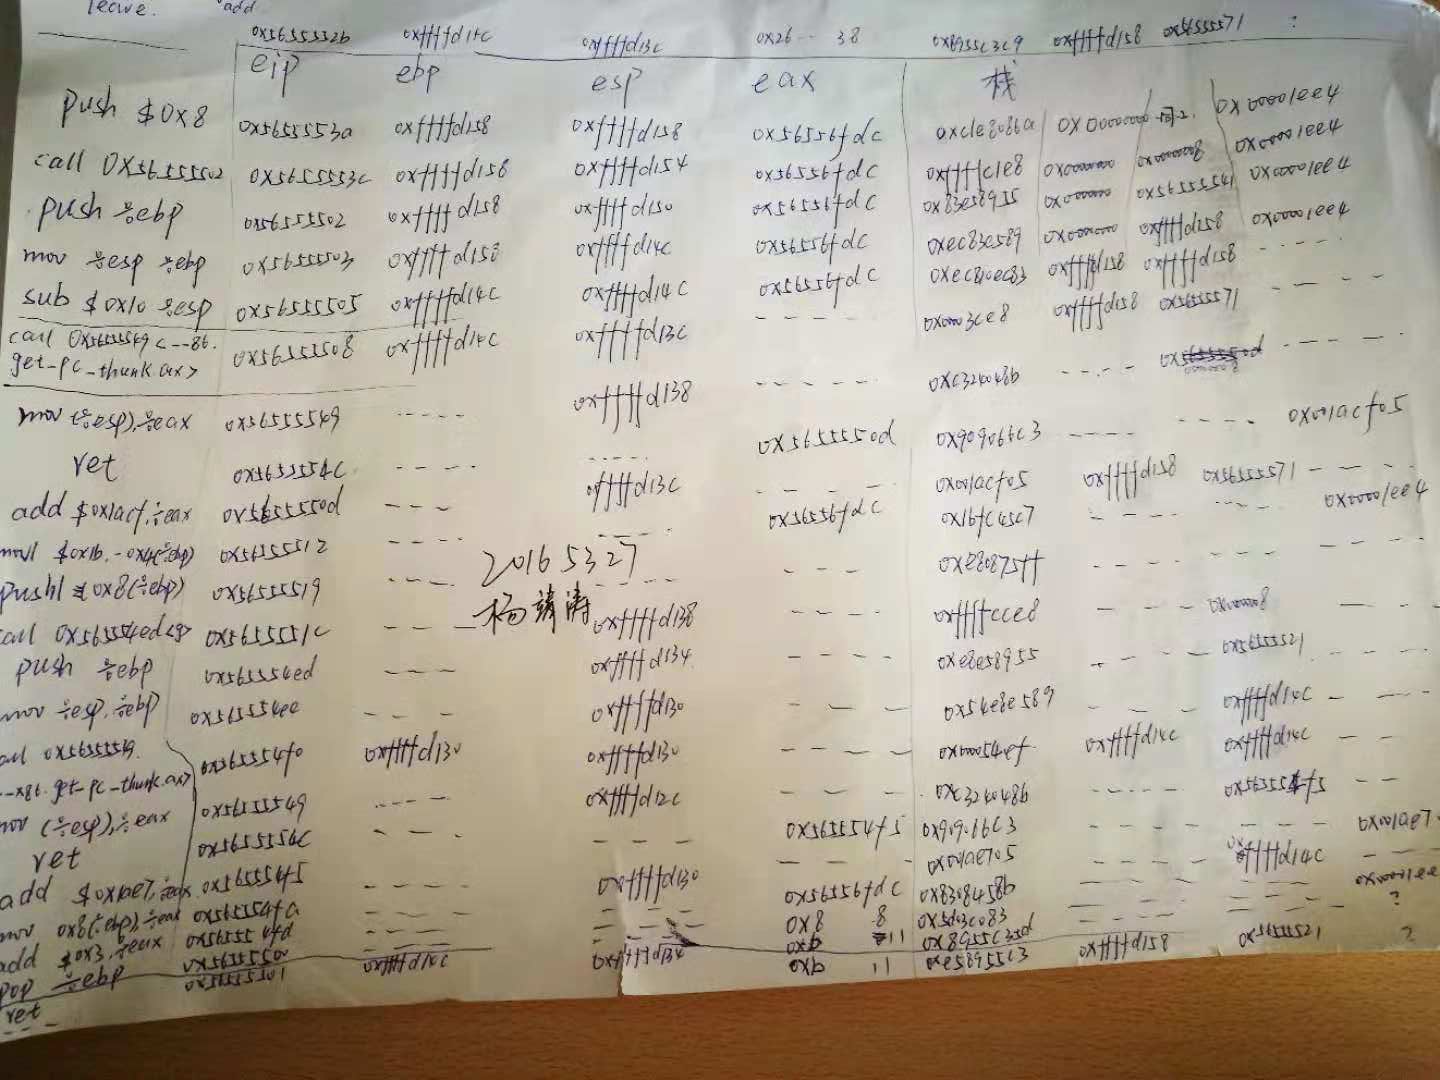 leave. add
0x5655552b 0xffffd14c 0xffffd13c 0x26 -- 38 0x8955c3c9 0xffffd158 0x56555571 ?
eip ebp esp eax 栈
push $0x8 0x5655553a 0xffffd158 0xffffd158 0x56556fdc 0xc1e8086a 0x00000000 0x00001ee4
call 0x56555502 0x5655553c 0xffffd158 0xffffd154 0x56556fdc 0xffffc1e8 0x00001ee4
push %ebp 0x56555502 0xffffd158 0xffffd150 0x56556fdc 0x83e58955 0x56555541 0x00001ee4
mov %esp %ebp 0x56555503 0xffffd158 0xffffd14c 0x56556fdc 0xec83e589 0xffffd158 0x00001ee4
sub $0x10 %esp 0x56555505 0xffffd14c 0xffffd14c 0x56556fdc 0xec810ec83 0xffffd158 0xffffd158 - - - -
call 0x56555549 <--86. 0x56555508 0xffffd14c 0xffffd13c - - - - 0x0003ce8 0xffffd158 0x56555571 - - - -
get-pc-thunk.ax>
mov (%esp),%eax 0x56555549 - - - - 0xffffd138 - - - - 0xc324048b - - - - - - - -
ret 0x5655554c - - - - - - - - 0x5655550d 0x909066c3 - - - - - - - - 0x001acf05
add $0x1acf,%eax 0x5655550d - - - - 0xffffd13c - - - - 0x001acf05 0xffffd158 0x56555571 - - - -
movl $0x1b,-0x4(%ebp) 0x56555512 - - - - - - - - 0x56556fdc 0x1bfc45c7 - - - - - - - - 0x00001ee4
pushl $0x8(%ebp) 0x56555519 - - - - 20165327 - - - - 0xe80875ff - - - - - - - -
call 0x565554ed<g> 0x5655551c - - - - 杨靖涛 0xffffd138 - - - - 0xffffcce8 - - - - - - - -
push %ebp 0x565554ed - - - - 0xffffd134 - - - - 0xe8e58955 - - - - 0x56555521 - - - -
mov %esp,%ebp 0x565554ee - - - - 0xffffd130 - - - - 0x54e8e589 - - - - 0xffffd14c - - - -
call 0x56555549. 0x565554f0 0xffffd130 0xffffd130 - - - - 0x000054ef 0xffffd14c 0xffffd14c - - - -
--x86.get-pc-thunk.ax>
mov (%esp),%eax 0x56555549 - - - - 0xffffd12c 0xc324048b - - - - 0x565554f5 - -
ret 0x5655554c - - - - 0x565554f5 0x909066c3 - - - - - - - - 0x001ae7
add $0x1ae7,%eax 0x565554f5 - - - - 0xffffd130 - - - - 0x001ae705 - - - - 0xffffd14c - - - -
mov 0x8(%ebp),%eax 0x565554fa - - - - - - - - 0x56556fdc 0x8308458b - - - - - - - - 0x00001ee
add $0x3,%eax 0x565554fd - - - - - - - - 0x8 8 0x5d03c083 - - - - - - - - ?
pop %ebp 0x56555500 - - - - - - - - 0xb 11 0x8955c35d - - - - - - - -
ret 0x56555501 0xffffd14c 0xffffd134 0xb 11 0xe58955c3 0xffffd158 0x56555521 ?